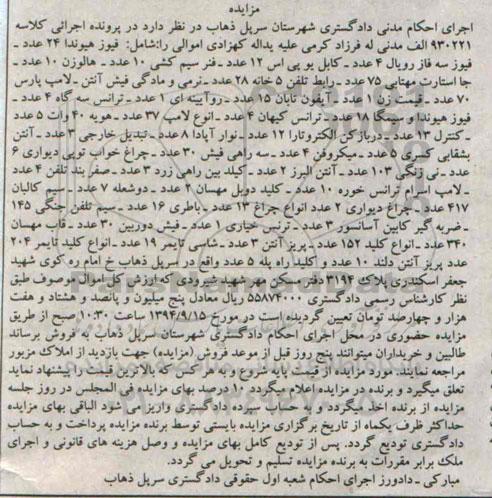 مزایده
اجرای احکام مدنی دادگستری شهرستان سرپل ذهاب در نظر دارد در پرونده اجرائی کلاسه
۹۳۰۲۲۱ الف مدنی له فرزاد کرمی علیه یداله کهزادی اموالی را:شامل: فیوز هیوندا ۲۴ عدد -
فیوز سه فاز رویال ۴ عدد - کابل یو پی اس ۱۲ عدد - فنر سیم کشی ۱۰ عدد - هالوزن ۱۰ عدد -
جا استارت مهتابی ۷۵ عدد - رابط تلفن ۵ خانه ۲۸ عدد - نرمی و مادگی فیش آنتن - لامپ پارس
۷۰ عدد - قیمت زن ۱ عدد - آیفون تابان ۱۵ عدد - روآیینه ای ۱ عدد - ترانس سه گاه ۴ عدد -
فیوز هیوندا و سیمگا ۱۸ عدد - ترانس کیهان ۴ عدد - انوع لامپ ۳۷ عدد - هویه ۴۰ وات ۵ عدد
- کنترل ۱۳ عدد - دربازکن الکتروتارا ۱۲ عدد - نوار آپادا ۸ عدد - تبدیل خارجی ۳ عدد - آنتن
بشقابی کسری ۵ عدد - میکروفن ۴ عدد - سه راهی فیش ۳۰ عدد - چراغ خواب توپی دیواری ۶
عدد - نی زنگی ۱۰۳ عدد - آنتن البرز ۲ عدد - کیلد بین راهی زرد ۳ عدد - صفر بند تلفن ۴ عدد
- لامپ اسرام ترانس خوره ۱۰ عدد - کلید دوپل مهسان ۲ عدد - دوشعله ۷ عدد - سیم کالبان
۴۱۷ عدد - چراغ دیواری ۲ عدد انواع چراغ ۱۳ عدد - باطری ۱۶ عدد - سیم تلفن جنگی ۱۴۵
- ضربه گیر کابین آسانسور ۳ عدد - ترنس خیاری ۱ عدد - فیش دوربین ۳۰ عدد - قاب مهسان
۳۴۰ عدد - انواع کلید ۱۵۲ عدد - پریز آنتن ۳ عدد - شاسی تایمر ۱۹ عدد - انواع کلید تایمر ۲۰۴
عدد پریز آنتن دلند ۱۰ عدد و کلید راه پله ۵ عدد واقع در سرپل ذهاب خ امام ره کوی شهید
جعفر اسکندری پلاک ۳۱۹۴ دفتر سکن مهر شهید شیرودی که ارزش کل اموال موصوف طبق
نظر کارشناس رسمی دادگستری ۵۵۸۷۴۰۰۰ ریال معادل پنج میلیون و پانصد و هشتاد و هفت
هزار و چهارصد تومان تعیین گردیده است در مورخ ۱۳۹۴/۹/۱۵ ساعت ۱۰:۳۰ صبح از طریق
مزایده حضوری در محل اجرای احکام دادگستری شهرستان سرپل ذهاب به فروش برساند
طالبین و خریداران میتوانند پنج روز قبل از موعد فروش (مزایده) جهت بازدید از املاک مزبور
مراجعه نمایند. مورد مزایده از قیمت پایه شروع و به هر کس که بالاترین قیمت را پیشنهاد نماید
تعلق میگیرد و برنده در مزایده اعلام میگردد ۱۰ درصد بهای مزایده فی المجلس در روز جلسه
مزایده از برنده اخذ میگردد و به حساب سپرده دادگستری واریز می شود الباقی بهای مزایده
حداکثر ظرف یکماه از تاریخ برگزاری مزایده بایستی توسط برنده مزایده پرداخت و به حساب
دادگستری تودیع گردد. پس از تودیع کامل بهای مزایده و وصل هزینه های قانونی و اجرای
ملک برابر مقررات به برنده مزایده تسلیم و تحویل می گردد.
مبارکی - دادورز اجرای احکام شعبه اول حقوقی دادگستری سرپل ذهاب